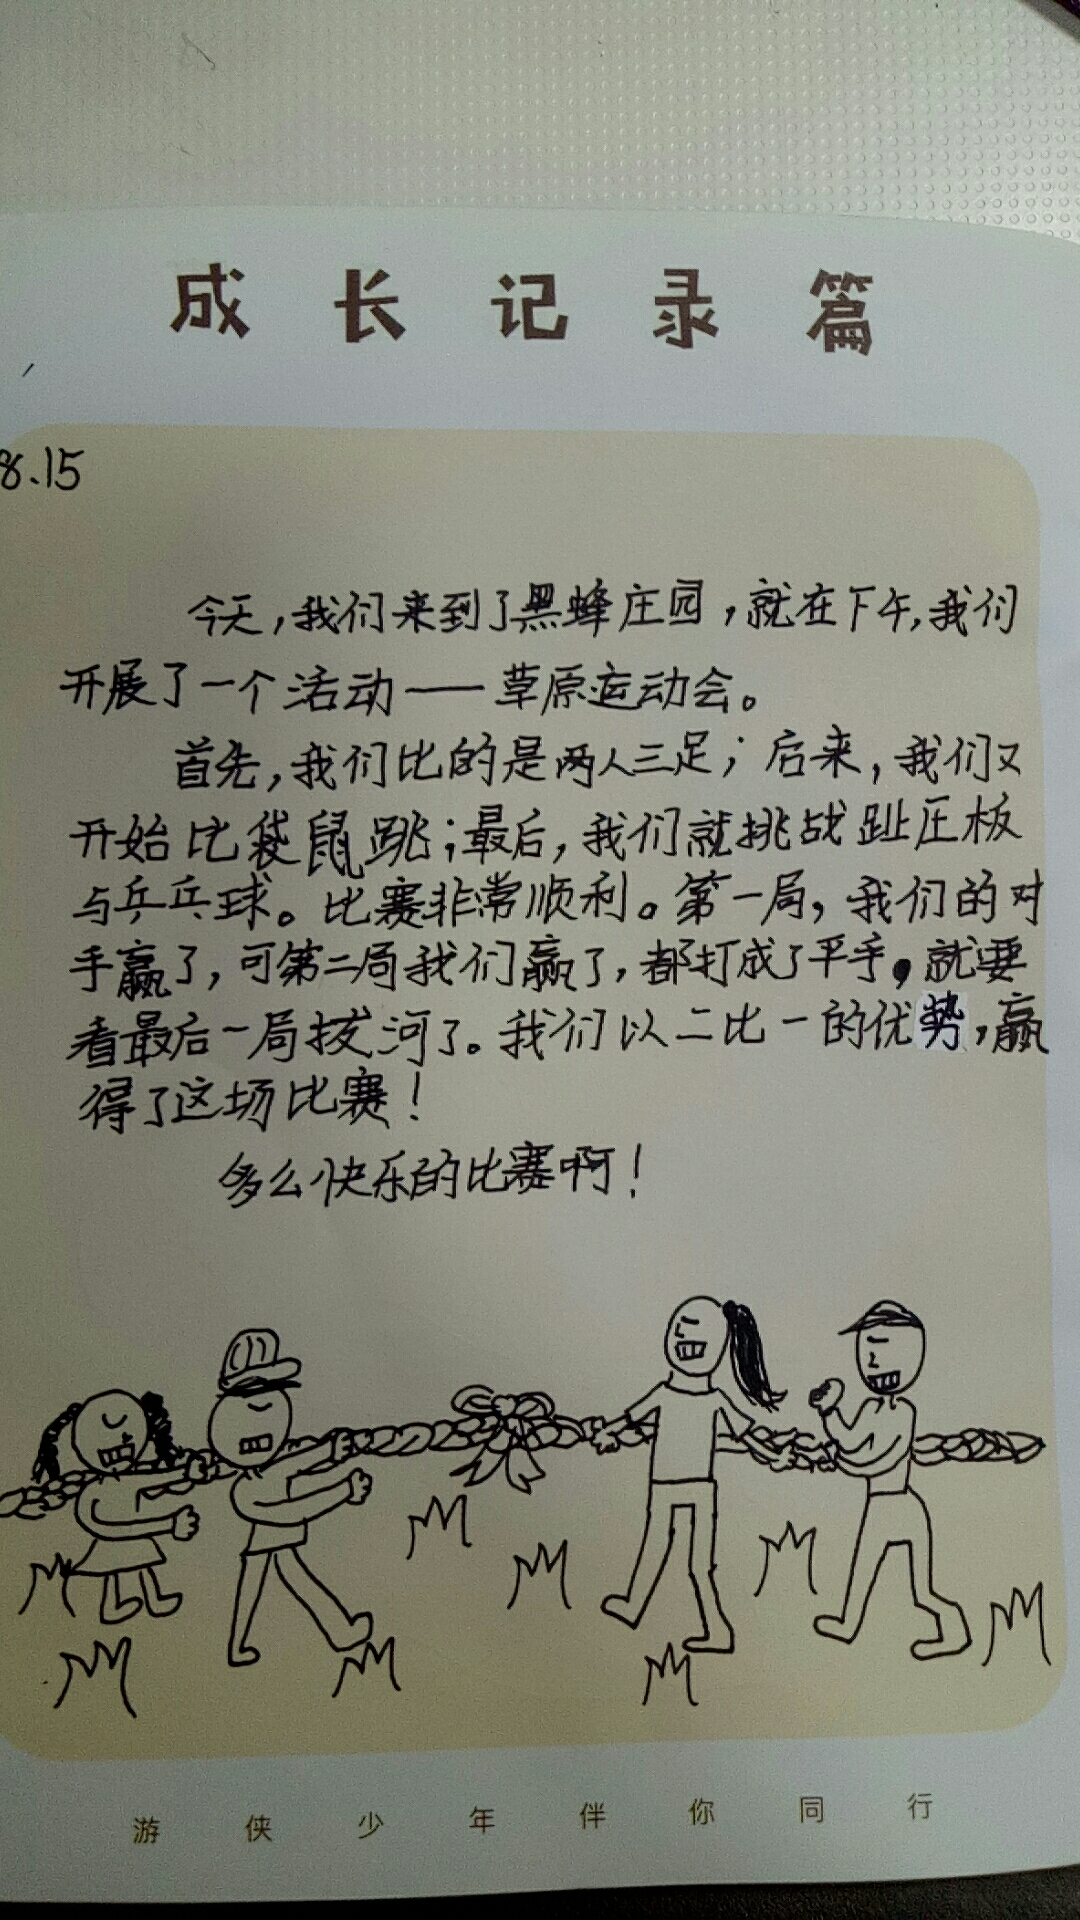 成长记录篇
8.15
今天，我们来到了黑蜂庄园，就在下午，我们
开展了一个活动——草原运动会。
首先，我们比的是两人三足；后来，我们又
开始比袋鼠跳；最后，我们就挑战趾压板
与乒乓球。比赛非常顺利。第一局，我们的对
手赢了，可第二局我们赢了，都打成了平手，就要
看最后一局拔河了。我们以二比一的优势，赢
得了这场比赛！
多么快乐的比赛啊！
游侠少年伴你同行